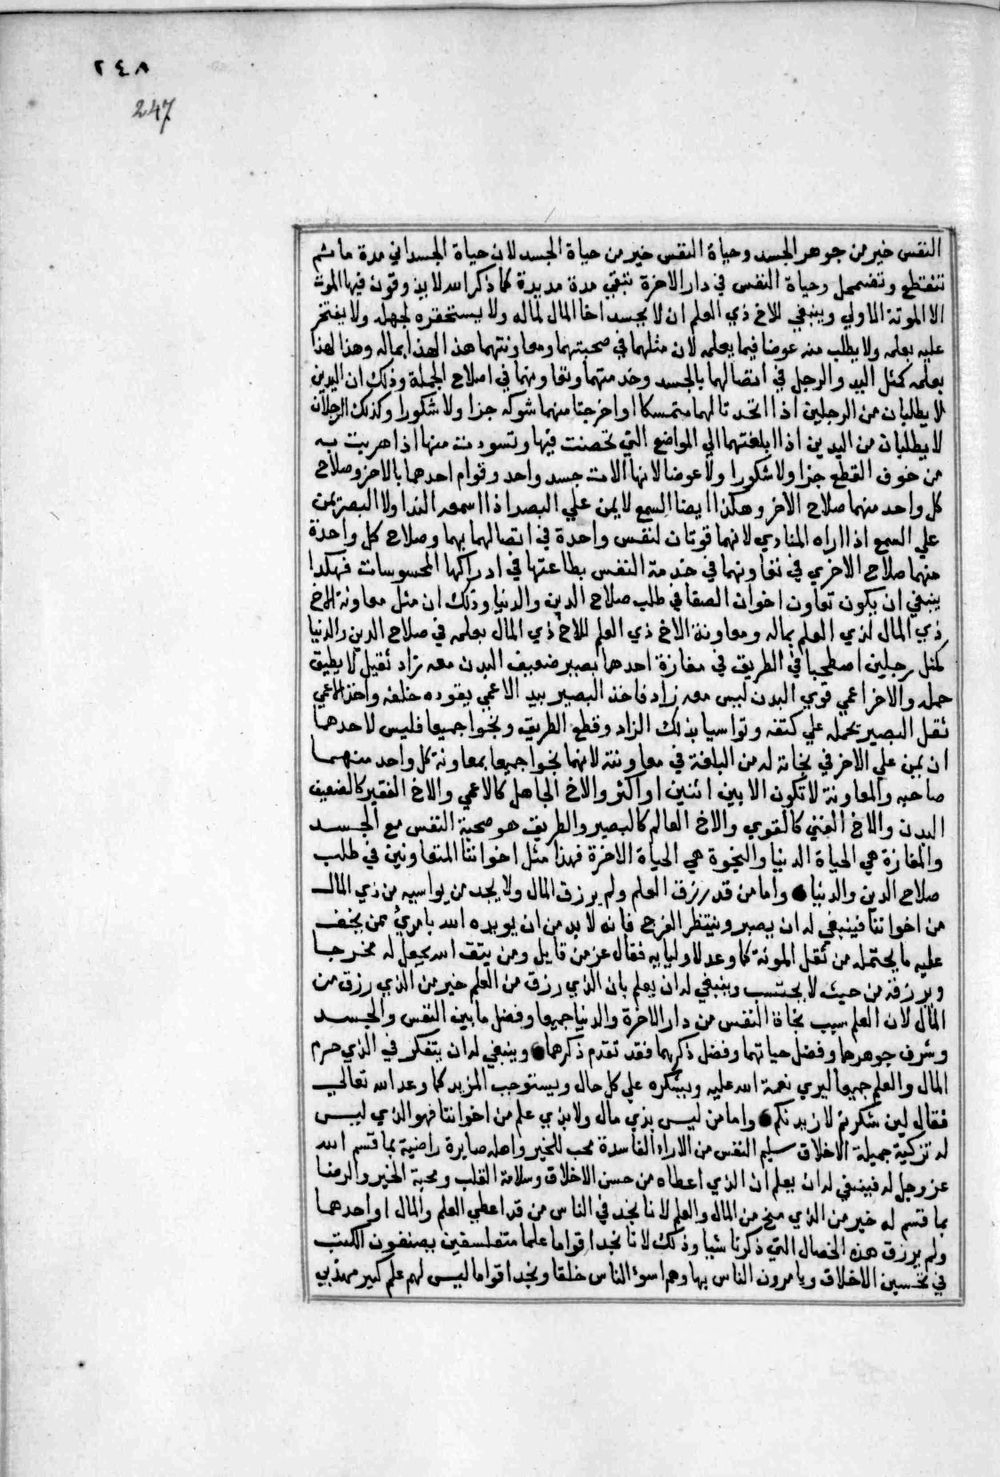 ٢٤٨
247
النفس خير من جوهر الجسد وحياة النفس خير من حياة الجسد لان حياة الجسد الي مدة ما ثم
تنقطع وتضمحل وحياة النفس في دار الاخرة تبقي مدة مديدة كما ذكر الله لا يذوقون فيها الموت
الا الموتة الاولي وينبغي للاخ ذي العلم ان لا يحسد اخا المال لماله ولا يستحقره لجهله ولا يفتخر
عليه بعلمه ولا يطلب منه عوضا فيما يعلمه لان مثلهما في صحبتهما ومعاونتهما هذا لهذا بماله وهذا لهذا
بعلمه كمثل اليد والرجل في اتصالهما بالجسد وخدمتهما وتعاونهما في اصلاح الجملة وذلك ان اليدين
لا يطلبان من الرجلين اذا اتخدتا لهما متمسكا او اخرجتا منهما شوكه جزا ولا شكورا وكذلك الرجلان
لا يطلبان من اليدين اذا ابلغتهما الي المواضع التي تحصنت فيها وتسودت منها اذا هربت به
من خوف القطع جزا ولا شكورا ولا عوضا لانها الات جسد واحد وقوام احدهما بالاخر وصلاح
كل واحد منهما صلاح الاخر وهكذا ايضا السمع لا يمن علي البصر اذا اسمعه الندا ولا البصر يمن
علي السمع اذا اراه المنادي لانهما قوتان لنفس واحدة في اتصالهما بهما وصلاح كل واحدة
منهما صلاح الاخري في تعاونهما في خدمة النفس بطاعتها في ادراكها المحسوسات فهكذا
ينبغي ان يكون تعاون اخوان الصفا في طلب صلاح الدين والدنيا وذلك ان مثل معاونة الاخ
ذي المال لذي العلم بماله ومعاونة الاخ ذي العلم للاخ ذي المال بعلمه في صلاح الدين والدنيا
كمثل رجلين اصطحبا في الطريق في مفازة احدهما بصير ضعيف البدن معه زاد ثقيل لا يطيق
حمله والاخر اعمي قوي البدن ليس معه زاد فاخذ البصير بيد الاعمي يقوده خلفه واخذ الاعمي
ثقل البصير يحمله علي كتفه وتواسيا بذلك الزاد وقطعا الطريق ونجوا جميعا فليس لاحدهما
ان يمن علي الاخر في نجاته له من البلغة في معاونته لانهما نجوا جميعا بمعاونة كل واحد منهما
صاحبه والمعاونة لا تكون الا بين اثنين او اكثر والاخ الجاهل كالاعمي والاخ الفقير كالضعيف
البدن والاخ الغني كالقوي والاخ العالم كالبصير والطريق هو صحبة النفس مع الجسد
والمفازة هي الحياة الدنيا والنجوة هي الحياة الاخرة فهذا مثل اخواننا المتعاونين في طلب
صلاح الدين والدنيا واما من قد رزق العلم ولم يرزق المال ولا يجد من يواسيه من ذي المال
من اخواننا فينبغي له ان يصبر وينتظر الفرج فانه لا بد من ان يويده الله بامري ممن يخفف
عليه ما يحتمله من ثقل المونة كما وعد لاوليايه فقال عز من قايل ومن يتق الله يجعل له مخرجا
ويرزقه من حيث لا يحتسب وينبغي له ان يعلم بان الذي رزق من العلم خير من الذي رزق من
المال لان العلم سبب نجاة النفس من دار الاخرة والدنيا جميعا وفضل ما بين النفس والجسد
وشرف جوهرها وفضل حياتهما وفضل ذكرهما فقد تقدم ذكرهما وينبغي له ان يتفكر في الذي حرم
المال والعلم جميعا ليري نعمة الله عليه ويشكره علي كل حال ويستوجب المزيد كما وعد الله تعالي
فقال لين شكرتم لازيدنكم واما من ليس بذي مال ولا بذي علم من اخواننا فهو الذي ليس
له تزكية جميلة الاخلاق سليم النفس من الاراء الفاسدة محب للخير واهله صابرة راضية بما قسم الله
عز وجل له فينبغي له ان يعلم ان الذي اعطاه من حسن الاخلاق وسلامة القلب ومحبة الخير والرضا
بما قسم له خير من الذي منح من المال والعلم لانا نجد في الناس من قد اعطي العلم والمال او احدهما
ولم يرزق هذه الخصال التي ذكرنا شيا وذلك لانا نجد اقواما علما متفلسفين يصنفون الكتب
في تحسين الاخلاق ويامرون الناس بها وهم اسوء الناس خلقا ونجد اقواما ليس لهم علم كبير مهذبي